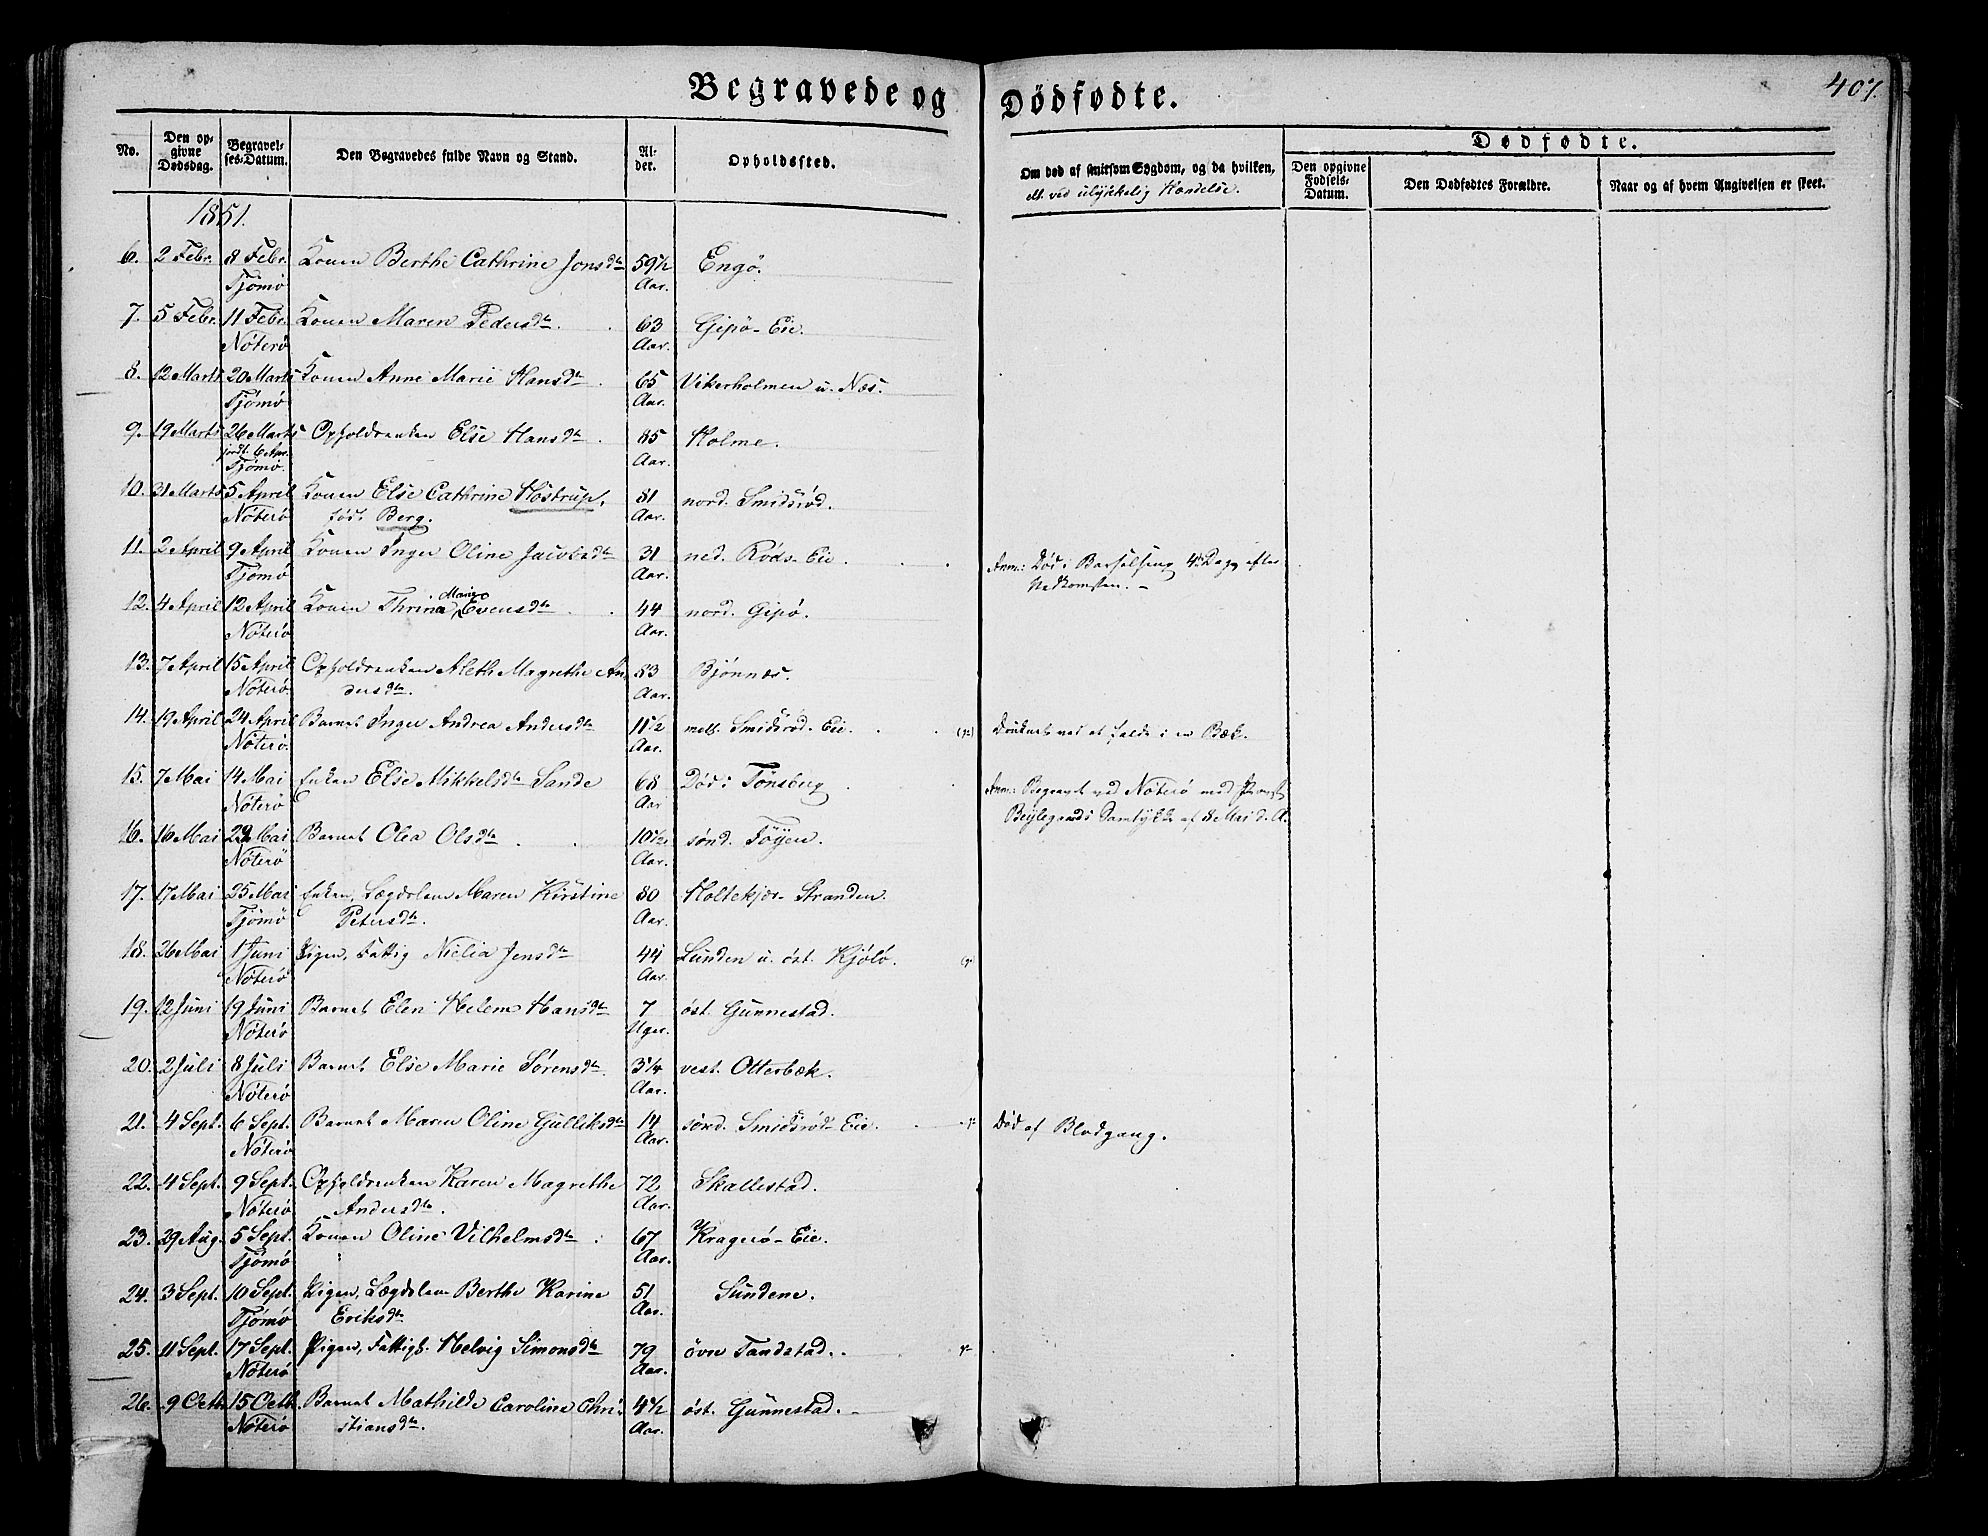 Begravede og Dødfødte.
407.
No.
Den op-
givne
Dødsdag.
Begravel-
ses-Datum.
Den Begravedes fulde Navn og Stand.
Al-
der.
Opholdssted.
Om død af smitsom Sygdom, og da hvilken,
elt. ved ulykkelig Hændelse.
Dødfødte.
Den opgivne
Fødsels-
Datum.
Den Dødfødtes Forældre.
Naar og af hvem Angivelsen er skeet.
1851.
6. 2 Febr. 8 Febr. Konen Berthe Cathrine Jonsdtr 59½ Engø.
Tjømø Aar.
7. 5 Febr. 11 Febr. Konen Maren Pedersdtr. 63 Gipø-Eie.
Nøterø Aar.
8. 12 Marts 20 Marts Konen Anne Marie Hansdtr. 65 Vikerholmen u. Næs.
Tjømø Aar.
9. 19 Marts 26 Marts Opholdsenken Else Hansdtr. 85 Holme.
jordf. 6 Apr.
Tjømø. Aar.
10. 31 Marts 5 April Konen Else Cathrine Høstrup, 81 nord. Smidsrød.
Nøterø født Berg. Aar.
11. 2 April 9 April Konen Inger Oline Jacobsdtr 31 ned. Røds-Eie. Anm.: Død i Barselseng 4de Dag efter
Tjømø Aar. Nedkomsten. -
12. 4 April 12 April Konen Thrina Marie Evensdtr. 44 nord. Gipø.
Nøterø Aar.
13. 7 April 15 April Opholdsenken Aleth Magrethe An- 83 Bjønnes.
Nøterø dersdtr. Aar.
14. 19 April 24 April Barnet Inger Andrea Andersdtr 11½ mell. Smidsrød-Eie. Druknet ved at falde i en Bæk.
Nøterø. Aar.
15. 7 Mai 14 Mai Enken Else Mikkelsdtr Sande 68 Død i Tønsberg Anm.: Begravet ved Nøterø med Provst
Nøterø Aar Bejlegaards Samtykke af 8 Mai d. A.
16. 16 Mai 22 Mai Barnet Olea Olsdtr. 10½ sønd. Føyen.
Nøterø Aar.
17. 17 Mai 25 Mai Enken, Lægdslem Maren Kirstine 80 Holtekjær-Stranden.
Tjømø Petersdtr. Aar.
18. 26 Mai 1 Juni Pigen, Fattig Nielia Jensdtr 44 Lunden u. øst. Kjøle.
Nøterø Aar.
19. 12 Juni 19 Juni Barnet Elen Helene Hansdtr 7 øst. Gunnestad.
Nøterø Uger.
20. 2 Juli 8 Juli Barnet Else Marie Sørensdtr. 3¼ vest. Otterbæk.
Nøterø Aar.
21. 4 Sept. 6 Sept. Barnet Maren Oline Gulliksdtr 14 sønd. Smidsrød-Eie. Død af Blodgang.
Nøterø Aar.
22. 4 Sept. 9 Sept. Opholdsenken Karen Magrethe 72 Skallestad.
Nøterø Andersdtr. Aar.
23. 29 Aug. 5 Sept. Konen Oline Vilhelmsdtr. 67 Kragerø-Eie.
Tjømø Aar.
24. 3 Sept. 10 Sept. Pigen, Lægdslem Berthe Karine 51 Sundene.
Tjømø Eriksdtr. Aar.
25. 11 Sept. 17 Sept. Pigen, Fattigl. Helvig Simonsdtr 79 øvre Tandstad.
Nøterø Aar.
26. 9 Octb. 15 Octb. Barnet Mathilde Caroline Chri- 4½ øst. Gunnestad.
Nøterø stiansdtr. Aar.